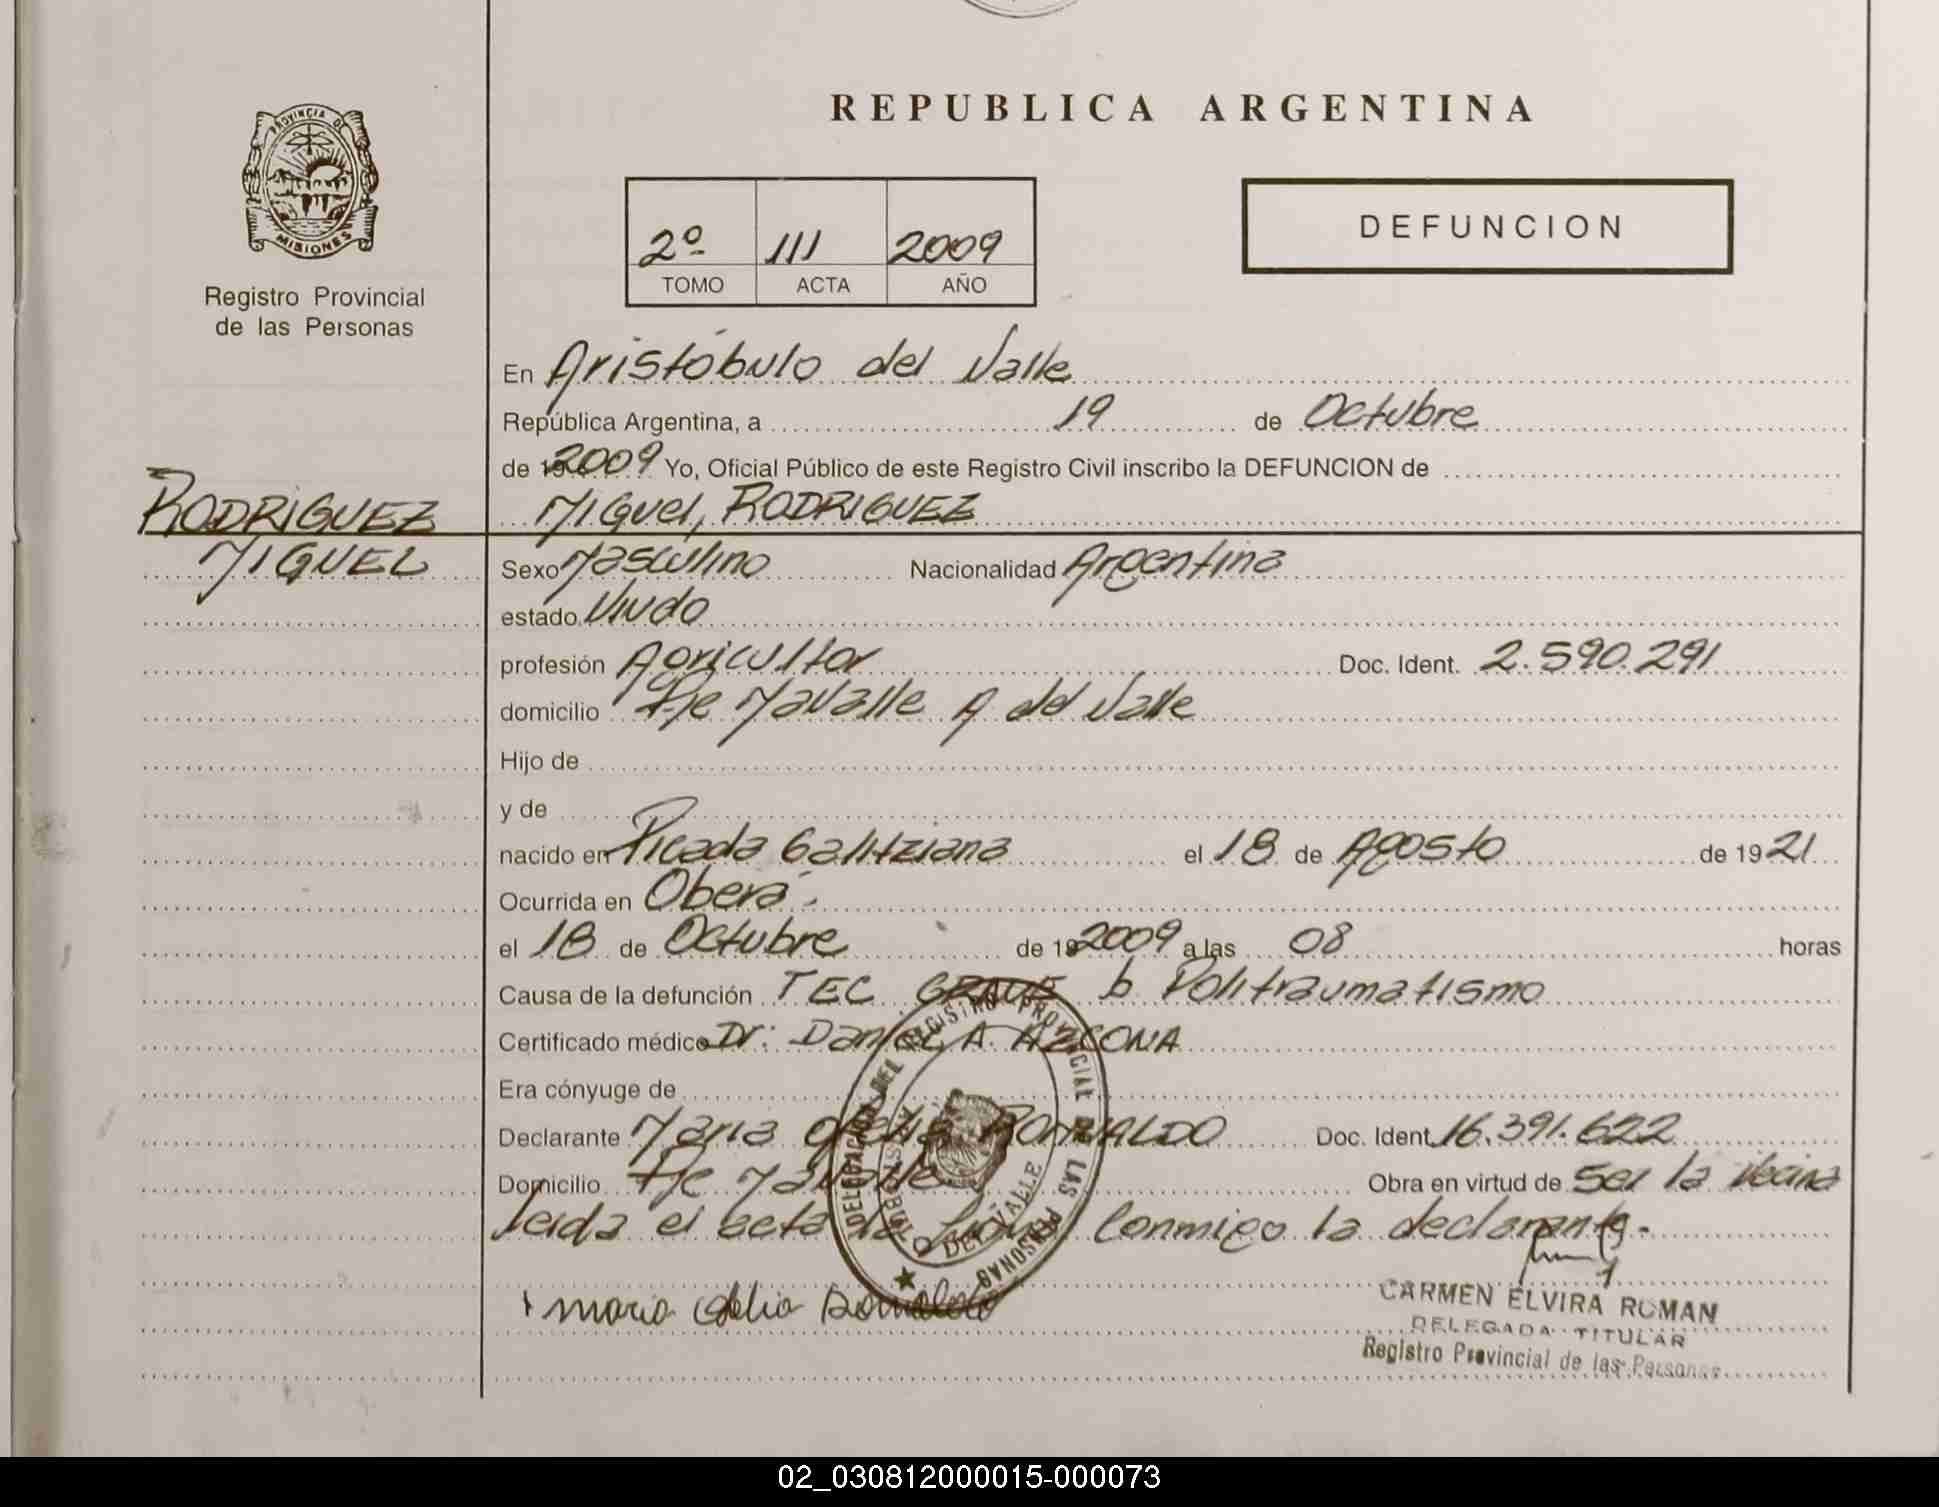 REPUBLICA ARGENTINA
PROVINCIA DE
MISIONES
Registro Provincial
de las Personas
2º 111 2009
TOMO ACTA AÑO
DEFUNCION
En Aristóbulo del Valle
República Argentina, a 19 de Octubre
de 2009 Yo, Oficial Público de este Registro Civil inscribo la DEFUNCION de
RODRIGUEZ
MIGUEL
Miguel, RODRIGUEZ
Sexo Masculino Nacionalidad Argentina
estado Viudo
profesión Agricultor Doc. Ident. 2.590.291
domicilio Pje Mavalle A del Valle
Hijo de
y de
nacido en Picada Galitziana el 18 de Agosto de 1921
Ocurrida en Oberá
el 18 de Octubre de 2009 a las 08 horas
Causa de la defunción TEC GRAVE b Politraumatismo
Certificado médico Dr: Daniel A. AZCONA
Era cónyuge de
Declarante Maria ROMALDO Doc. Ident 16.391.622
Domicilio Pje Mavalle Obra en virtud de ser la vecina
Leida el acta la firma Conmigo la declarante.
DELEGACION DEL REGISTRO PROVINCIAL DE LAS PERSONAS
DEL VALLE
maria Romaldo
CARMEN ELVIRA ROMAN
DELEGADA TITULAR
Registro Provincial de las Personas
02_030812000015-000073